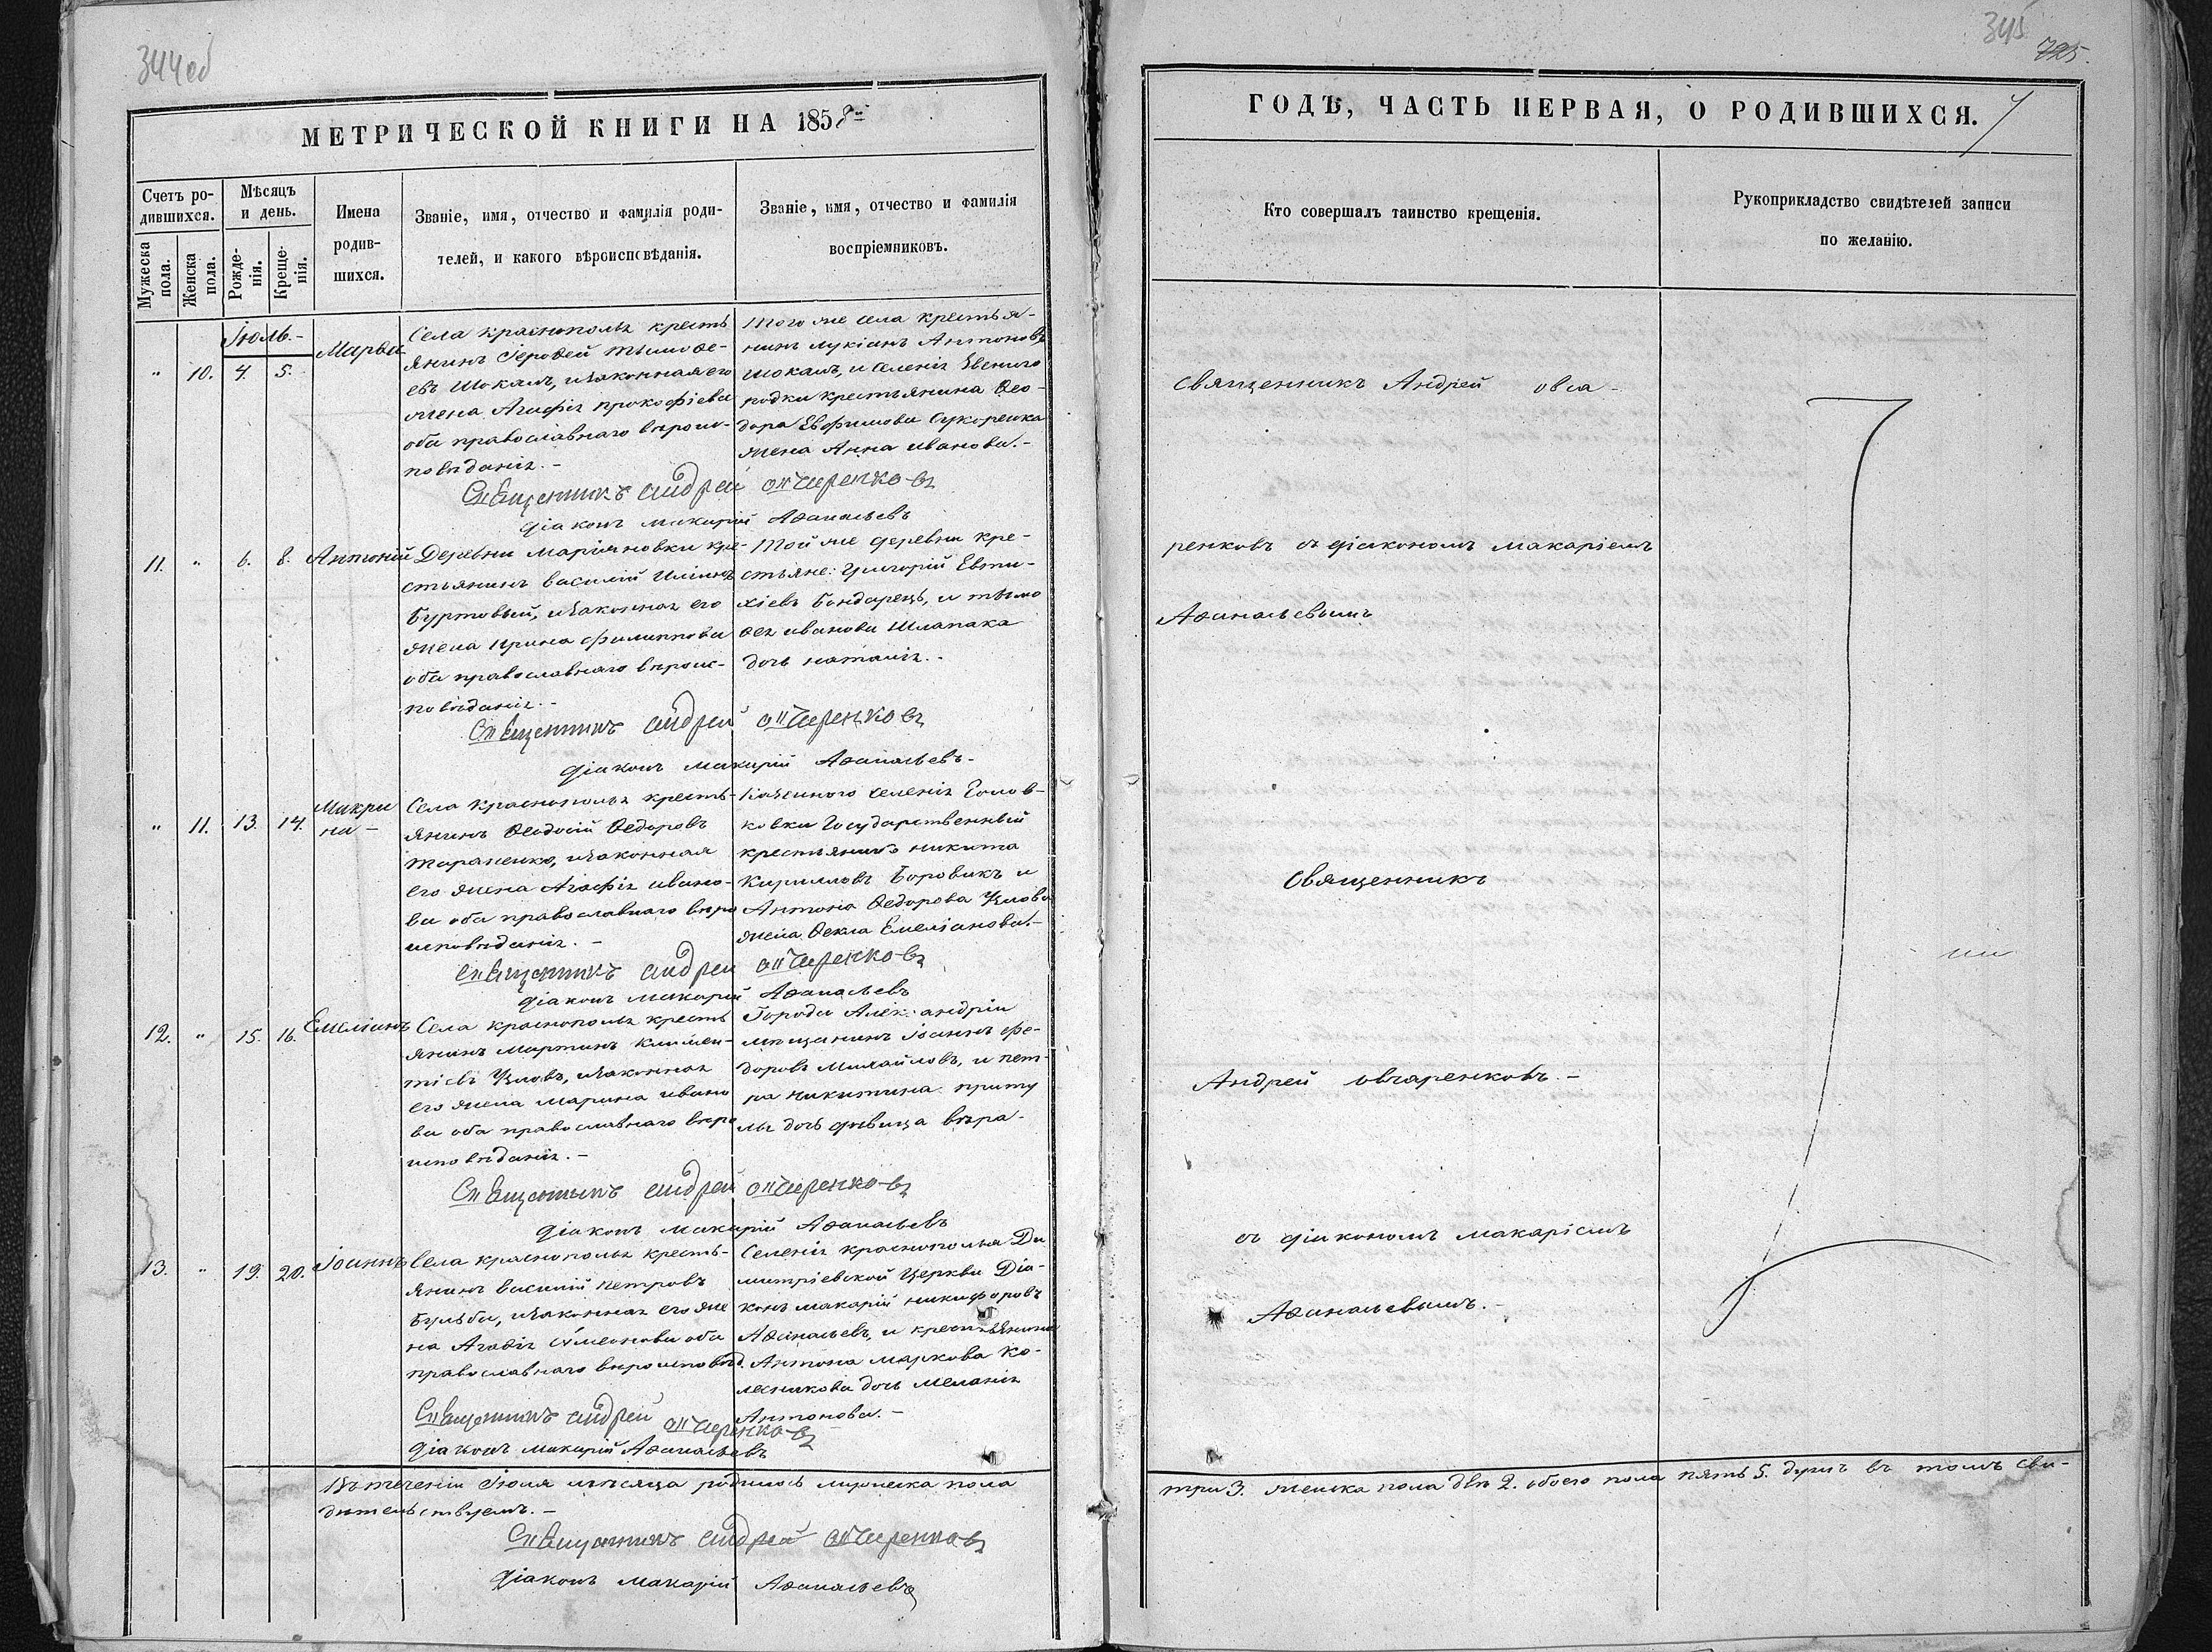 344об
МЕТРИЧЕСКОЙ КНИГИ НА 1858й
Счетъ ро-
дившихся.
Мѣсяцъ
и день.
Мужеска
пола.
Женска
пола.
Рожде-
нія.
Креще-
нія.
Имена
родив-
шихся.
Званіе, имя, отчество и фамилія роди-
телей, и какого вѣроисповѣданія.
Званіе, имя, отчество и фамилія
воспріемниковъ.
Іюль.-
" 10. 4. 5.
Марѳа
Села Краснополья кресть
янинъ Іероѳей Тимоѳе-
евъ Шокалъ, и законная его
жена Агафія Прокофіева
оба православнаго вѣроис-
повѣданія.-
Того же села крестья-
нинъ Лукіанъ Антоновъ
Шокалъ, и селенія Звениго
родки крестьянина Ѳео-
дора Евфимова Сукоренка
жена Анна Иванова.-
Священникъ Андрей Овчаренковъ
Діаконъ Макарій Аѳанасьевъ
11. " 6. 8. Антоній
Деревни Маріяновки кре-
стьянинъ Василій Илiинъ
Буртовый, и законная его
жена Ирина Филиппова
оба православнаго вѣроис-
повѣданія.-
Той же деревни кре-
стьяне: Григорій Евти-
хіевъ Бондарець, и Тимо
ѳея Иванова Шлапака
дочь Наталія.-
Священникъ Андрей Овчаренковъ
Діаконъ Макарій Аѳанасьевъ-
" 11. 13. 14.
Макри
на-
Села Краснополья кресть-
янинъ Ѳеодосій Ѳедоровъ
Тараненко, и законная
его жена Агафія Ивано-
ва оба православнаго вѣро
исповѣданія.-
Казеннаго селенія Голов-
ковки Государственный
крестьянинъ Никита
Кирилловъ Боровикъ и
Антона Ѳедорова Узлова
жена Ѳекла Емеліанова.-
Священникъ Андрей Овчаренковъ
Діаконъ Макарій Аѳанасьевъ
12. " 15. 16. Емеліанъ
Села Краснополья кресть
янинъ Мартинъ Климен-
тіевъ Узловъ, и законная
его жена Марина Ивано
ва оба православнаго вѣро
исповѣданія.-
Города Александріи
мѣщанинъ Іоаннъ Фе-
доровъ Михайловъ, и Пет-
ра Никитина Приту
лы дочь дѣвица Вѣра-
Священникъ Андрей Овчаренковъ
Діаконъ Макарій Аѳанасьевъ
13. " 19. 20. Іоаннъ
Села Краснополья кресть-
янинъ Василій Петровъ
Бульба, и законная его же
на Агафія Сѵмеонова оба
православнаго вѣроисповѣд.
Селенія Краснополья Ди
митріевской Церкви Діа-
конъ Макарій Никифоровъ
Аѳанасьевъ, и крестьянина
Антона Маркова Ко-
лесникова дочь Меланія
Антонова.-
Священникъ Андрей Овчаренковъ
Діаконъ Макарій Аѳанасьевъ
Въ теченіи Іюля мѣсяца родилось мужеска пола
дѣтельствуемъ.-
Священникъ Андрей Овчаренковъ
Діаконъ Макарій Аѳанасьевъ
345
725.
ГОДЪ, ЧАСТЬ ПЕРВАЯ, О РОДИВШИХСЯ.
Кто совершалъ таинство крещенія.
Рукоприкладство свидѣтелей записи
по желанію.
Священникъ Андрей Овча-
ренковъ съ діакономъ Макаріемъ
Аѳанасьевымъ
Священникъ
Андрей Овчаренковъ.-
съ діакономъ Макаріемъ
Аѳанасьевымъ.-
три 3. женска пола двѣ 2. обоего пола пять 5. душъ въ томъ сви-